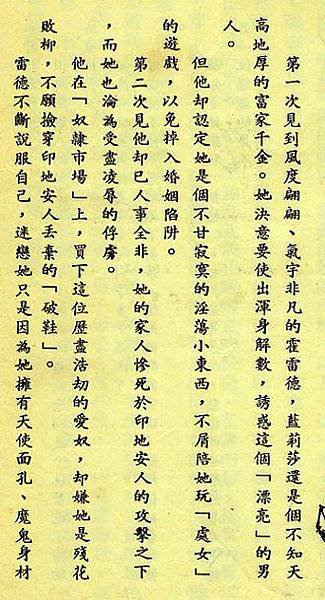 第一次見到風度翩翩、氣宇非凡的霍雷德，藍莉莎還是個不知天
高地厚的富家千金。她決意要使出渾身解數，誘惑這個「漂亮」的男
人。
但他却認定她是個不甘寂寞的淫蕩小東西，不屑陪她玩「處女」
的遊戲，以免掉入婚姻陷阱。
第二次見他却已人事全非，她的家人慘死於印地安人的攻擊之下
，而她也淪為受盡凌辱的俘虜。
他在「奴隸市場」上，買下這位歷盡浩劫的愛奴，却嫌她是殘花
敗柳，不願撿穿印地安人丟棄的「破鞋」。
雷德不斷說服自己，迷戀她只是因為她擁有天使面孔、魔鬼身材